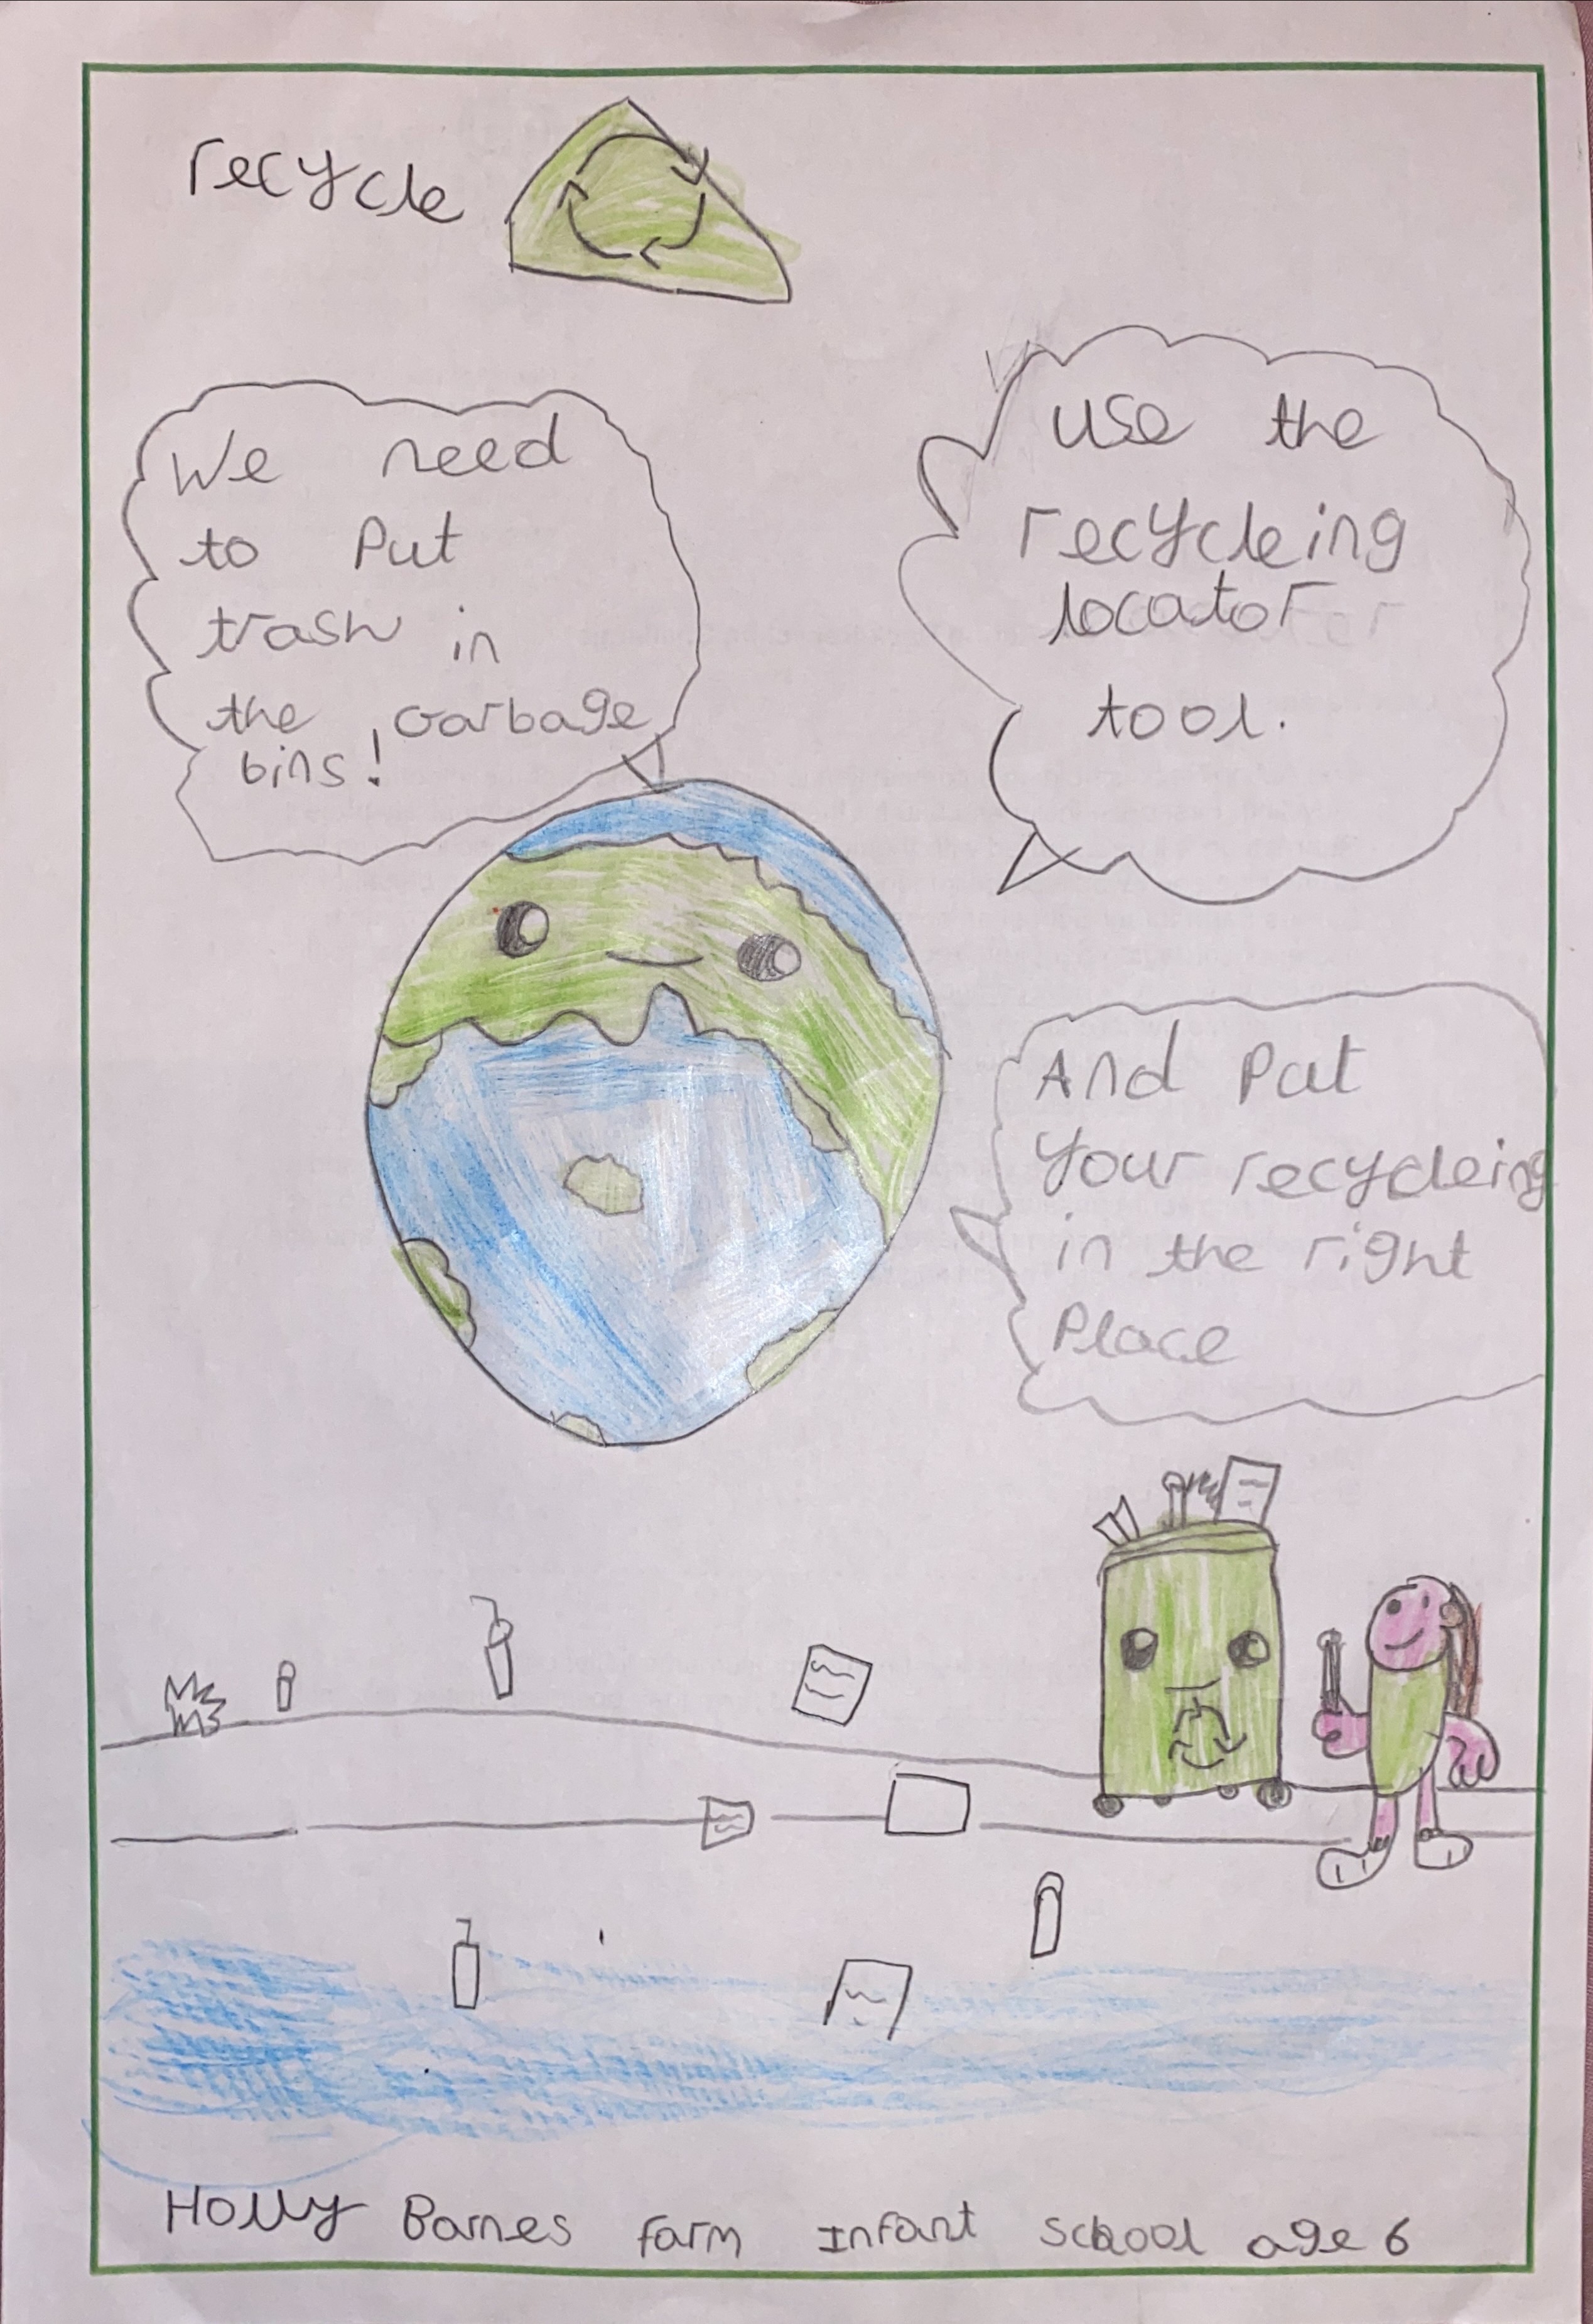 recycle
We need
to Put
trash in
the garbage
bins!
use the
recycleing
locator
tool.
And Put
Your recycleing
in the right
Place
Holly Barnes farm Infant school age 6